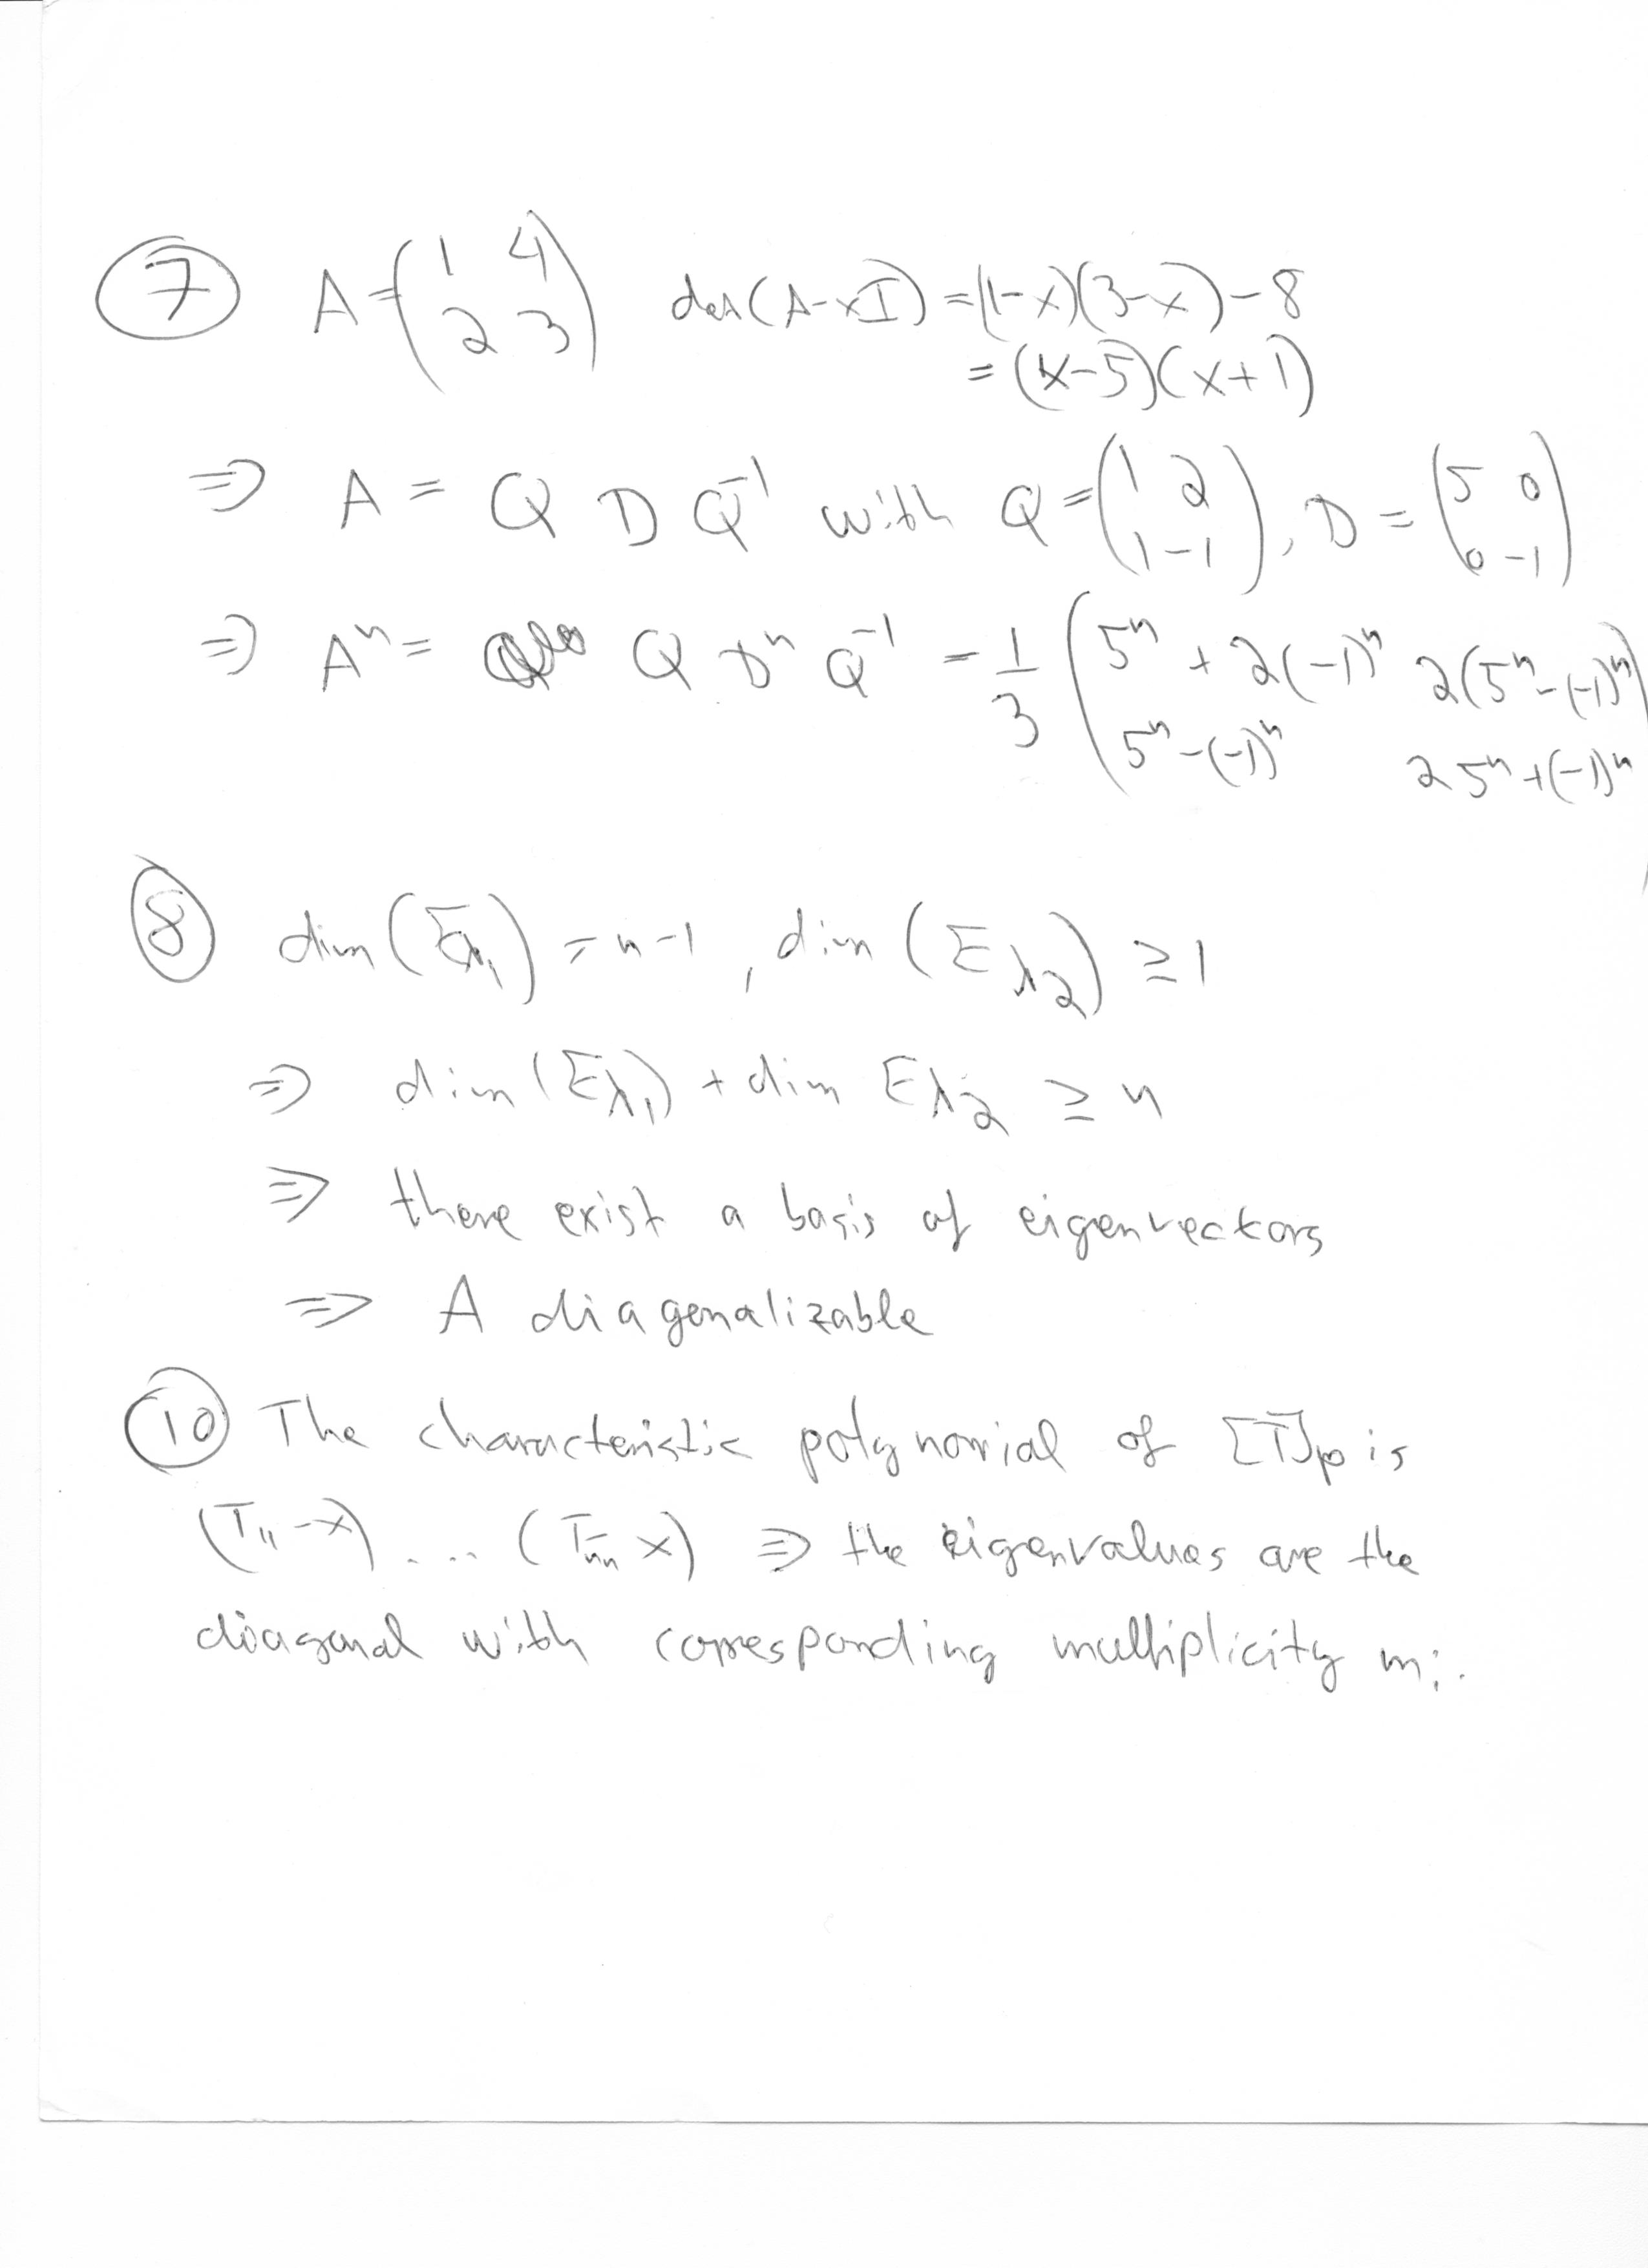 ⑦ A = (1 4 det(A-xI) = (1-x)(3-x) - 8
2 3) = (x-5)(x+1)
⇒ A = Q D Q⁻¹ with Q = (1 2 , D = (5 0
1 -1) 0 -1)
⇒ Aⁿ = Q Dⁿ Q⁻¹ = 1/3 (5ⁿ + 2(-1)ⁿ 2(5ⁿ-(-1)ⁿ)
5ⁿ-(-1)ⁿ 2 5ⁿ+(-1)ⁿ)
⑧ dim (E_λ₁) = n-1, dim (E_λ₂) ≥ 1
⇒ dim (E_λ₁) + dim E_λ₂ ≥ n
⇒ there exist a basis of eigenvectors
⇒ A diagonalizable
⑩ The characteristic polynomial of [T]_β is
(T₁₁-x) .... (Tₙₙ-x) ⇒ the eigenvalues are the
diagonal with corresponding multiplicity mᵢ.